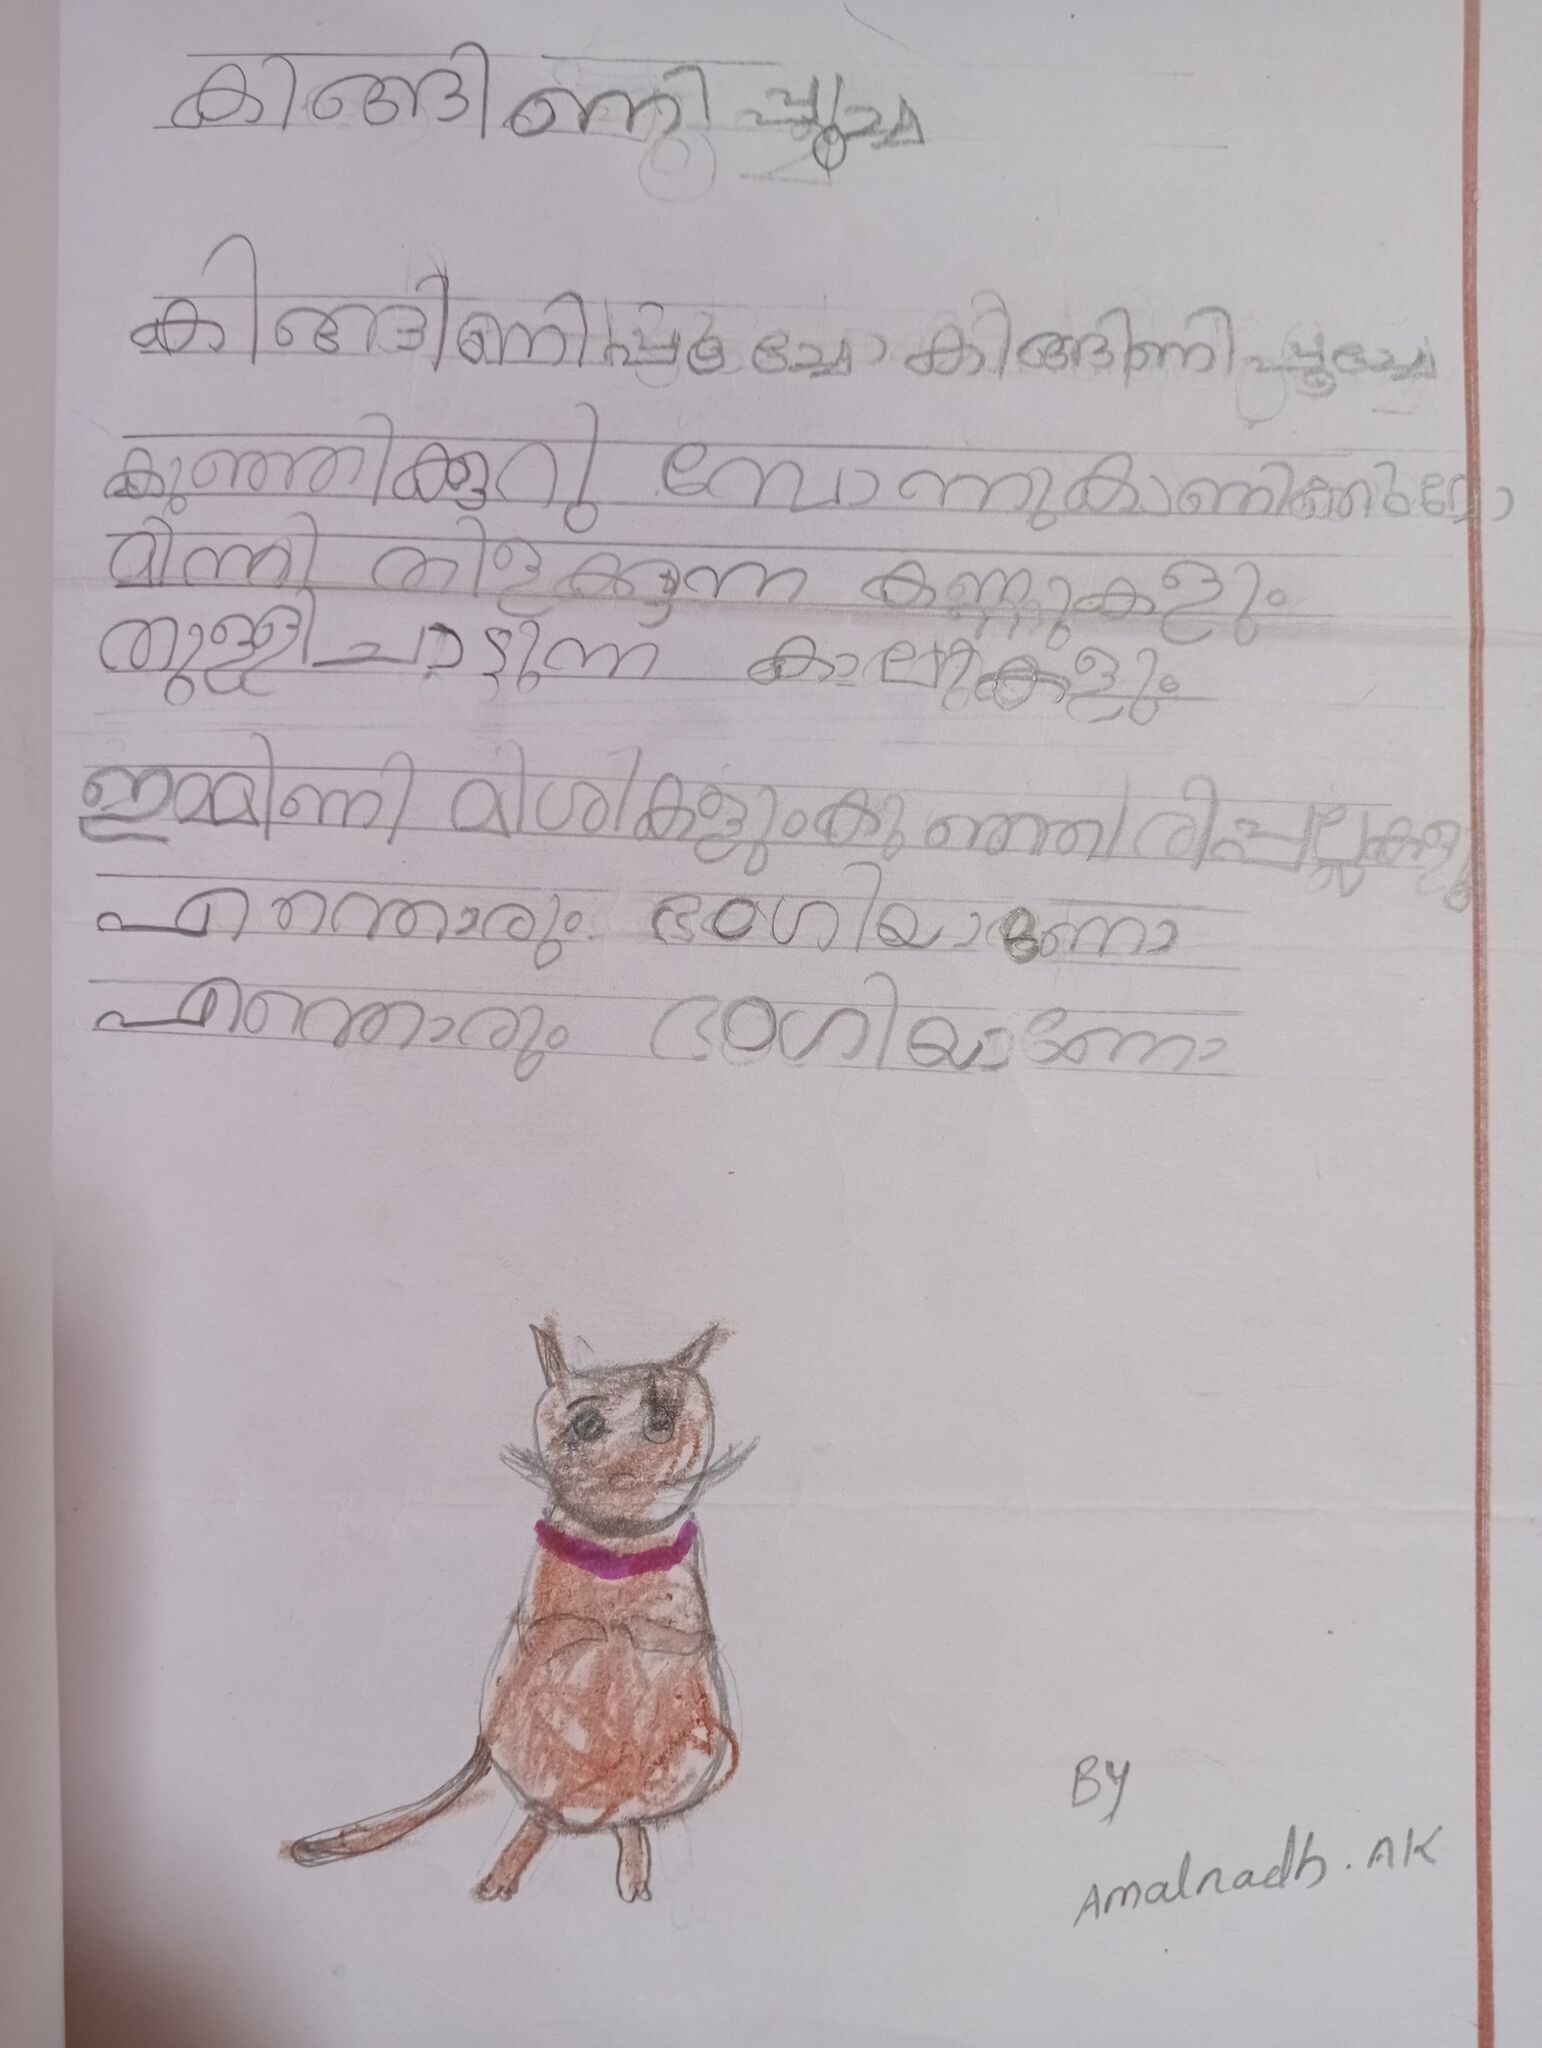 കിങ്ങിണി പൂച്ച
കിങ്ങിണിപ്പൂച്ചേ കിങ്ങിണിപ്പൂച്ചേ
കുഞ്ഞിക്കുറു
മിന്നി തിളക്കുന്ന കണ്ണുകളും
തുള്ളിചാടുന്ന കാലുകളും
ഇമ്മിണി മിശികളും കുഞ്ഞരിപ്പല്ലുകളു
എന്തൊരും ഭംഗിയാണോ
എന്തൊരും ഭംഗിയാണോ
BY
Amalnadh.AK